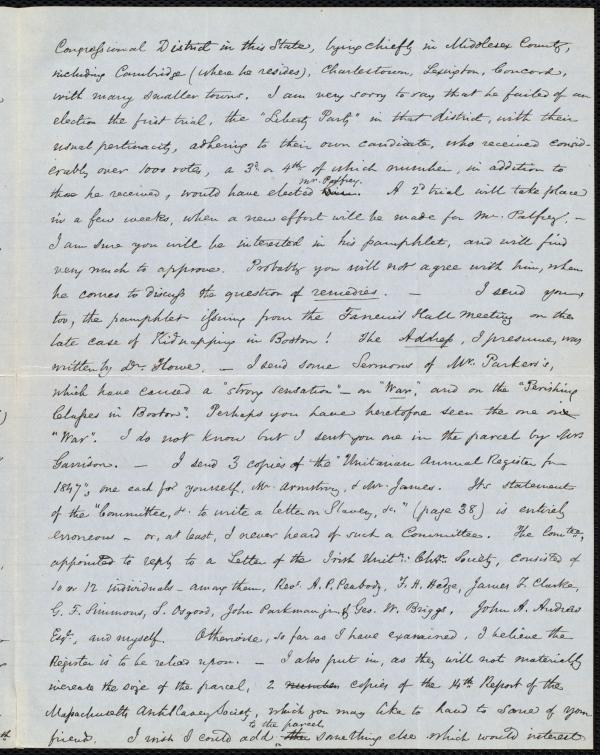 Congressional District in this State, lying chiefly in Middlesex County,
including Cambridge (where he resides), Charlestown, Lexington, Concord,
with many smaller towns. I am very sorry to say that he failed of an
election the first trial, the "Liberty Party" in that district, with their
usual pertinacity, adhering to their own candidate, who received consid-
erably over 1000 votes, a 3d. or 4th. of which number, in addition to
those he received, would have elected Mr. Palfrey. A 2d trial will take place
in a few weeks, when a new effort will be made for Mr. Palfrey. –
I am sure you will be interested in his pamphlet, and will find
very much to approve. Probably you will not agree with him, when
he comes to discuss the question of remedies. – I send you,
too, the pamphlet issuing from the Faneuil Hall Meeting on the
late case of Kidnapping in Boston! The Address, I presume, was
written by Dr. Howe. – I send some Sermons of Mr. Parker's,
which have caused a "strong sensation" – on "War", and on the "Perishing
Classes in Boston". Perhaps you have heretofore seen the one on
"War". I do not know but I sent you one in the parcel by Mr.
Garrison. – I send 3 copies of the "Unitarian Annual Register for
1847", one each for yourself, Mr. Armstrong, & Mr. James. Its statement
of the "Committee, &c. to write a letter on Slavery, &c." (page 38) is entirely
erroneous – or, at least, I never heard of such a Committee. The Comtee,
appointed to reply to a Letter of the Irish Unitn. Chn. Society, consisted of
10 or 12 individuals – among them, Revs. A. P. Peabody, F. H. Hedge, James F. Clarke,
G. F. Simmons, S. Osgood, John Parkman jr., & Geo. W. Briggs, John A. Andrew
Esqr., and myself. Otherwise, so far as I have examined, I believe the
Register is to be relied upon. – I also put in, as they will not materially
increase the size of the parcel, 2 number copies of the 14th Report of the
Massachusetts AntiSlavery Society, which you may like to hand to some of your
friends. I wish I could add to the parcel something else which would interest